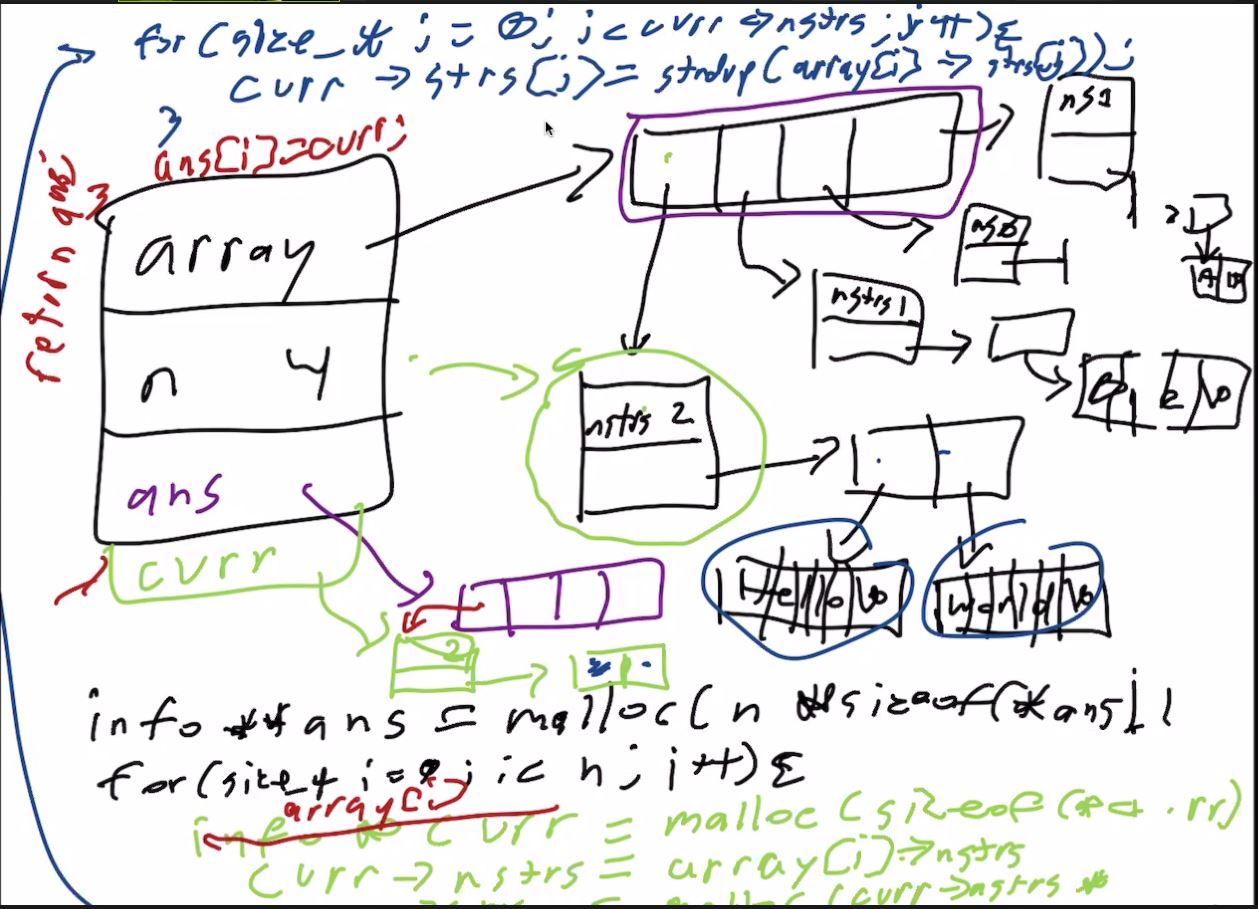 for (size_t j = 0; j < curr->nstrs; j++) {
curr -> strs[j] = strdup(array[i] -> strs[j]);
}
ans[i]=curr;
}
return ans;
array
n 4
ans
curr
ns1
ns0
nstrs1
nstrs 2
Hello\0
World\0
2
info ** ans = malloc(n * sizeof(*ans));
for(size_t i = 0; i < n; i++) {
array[i]
info * curr = malloc(sizeof(*curr)
curr -> nstrs = array[i]->nstrs
= malloc(curr->nstrs *